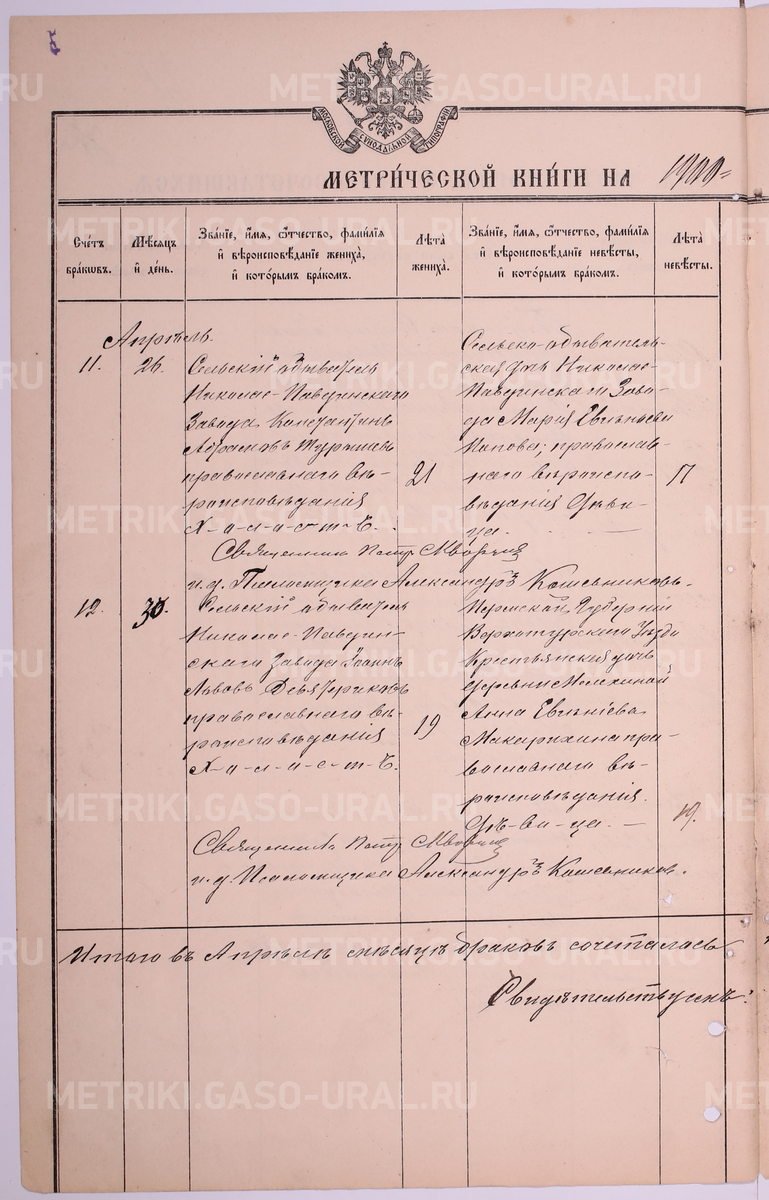 МОСКОВСКОЙ СѴНОДАЛЬНОЙ ТИПОГРАФІИ
МЕТРИ́ЧЕСКОЙ КНИ́ГИ НА 1900
Сче́тъ бра́кѡвъ.
Мѣ́сяцъ и҆ де́нь.
Зва́нїе, и҆́мя, ѻ҆́тчество, фами́лїя и҆ вѣроисповѣ́данїе жениха̀, и҆ кото́рымъ бра́комъ.
Лѣ́та жениха̀.
Зва́нїе, и҆́мя, ѻ҆́тчество, фами́лїя и҆ вѣроисповѣ́данїе невѣ́сты, и҆ кото́рымъ бра́комъ.
Лѣ́та невѣ́сты.
Апрѣль.
11.
26.
Сельскій обыватель
Николае-Павдинскаго
Завода Константинъ
православнаго вѣ-
роисповѣданія
Х-о-л-о-с-т-ъ.
21
Сельско-обыватель-
ская дочь Николае-
Павдинскаго Заво-
да Марія Евгеньева
Попова, православ-
наго вѣроиспо-
вѣданія дѣви-
ца.
17
Священникъ Петръ
и.д. Псаломщика Александръ Кошевниковъ.
12.
30.
Сельскій обыватель
Николае-Павдин-
скаго Завода Іоаннъ
Львовъ Десятериковъ
православнаго вѣ-
роисповѣданія
Х-о-л-о-с-т-ъ.
19
Пермской Губерніи
Верхотурскаго Уѣзда
Крестьянская дочь
деревни Молехиной
Анна Евгеніева
Макарихина пра-
вославнаго вѣ-
роисповѣданія.
дѣ-ви-ца.
19.
Священникъ Петръ
и.д. Псаломщика Александръ Кошевниковъ.
Итого въ Апрѣлѣ мѣсяцѣ браковъ сочеталось
Свидѣтельствуемъ:
METRIKI.GASO-URAL.RU